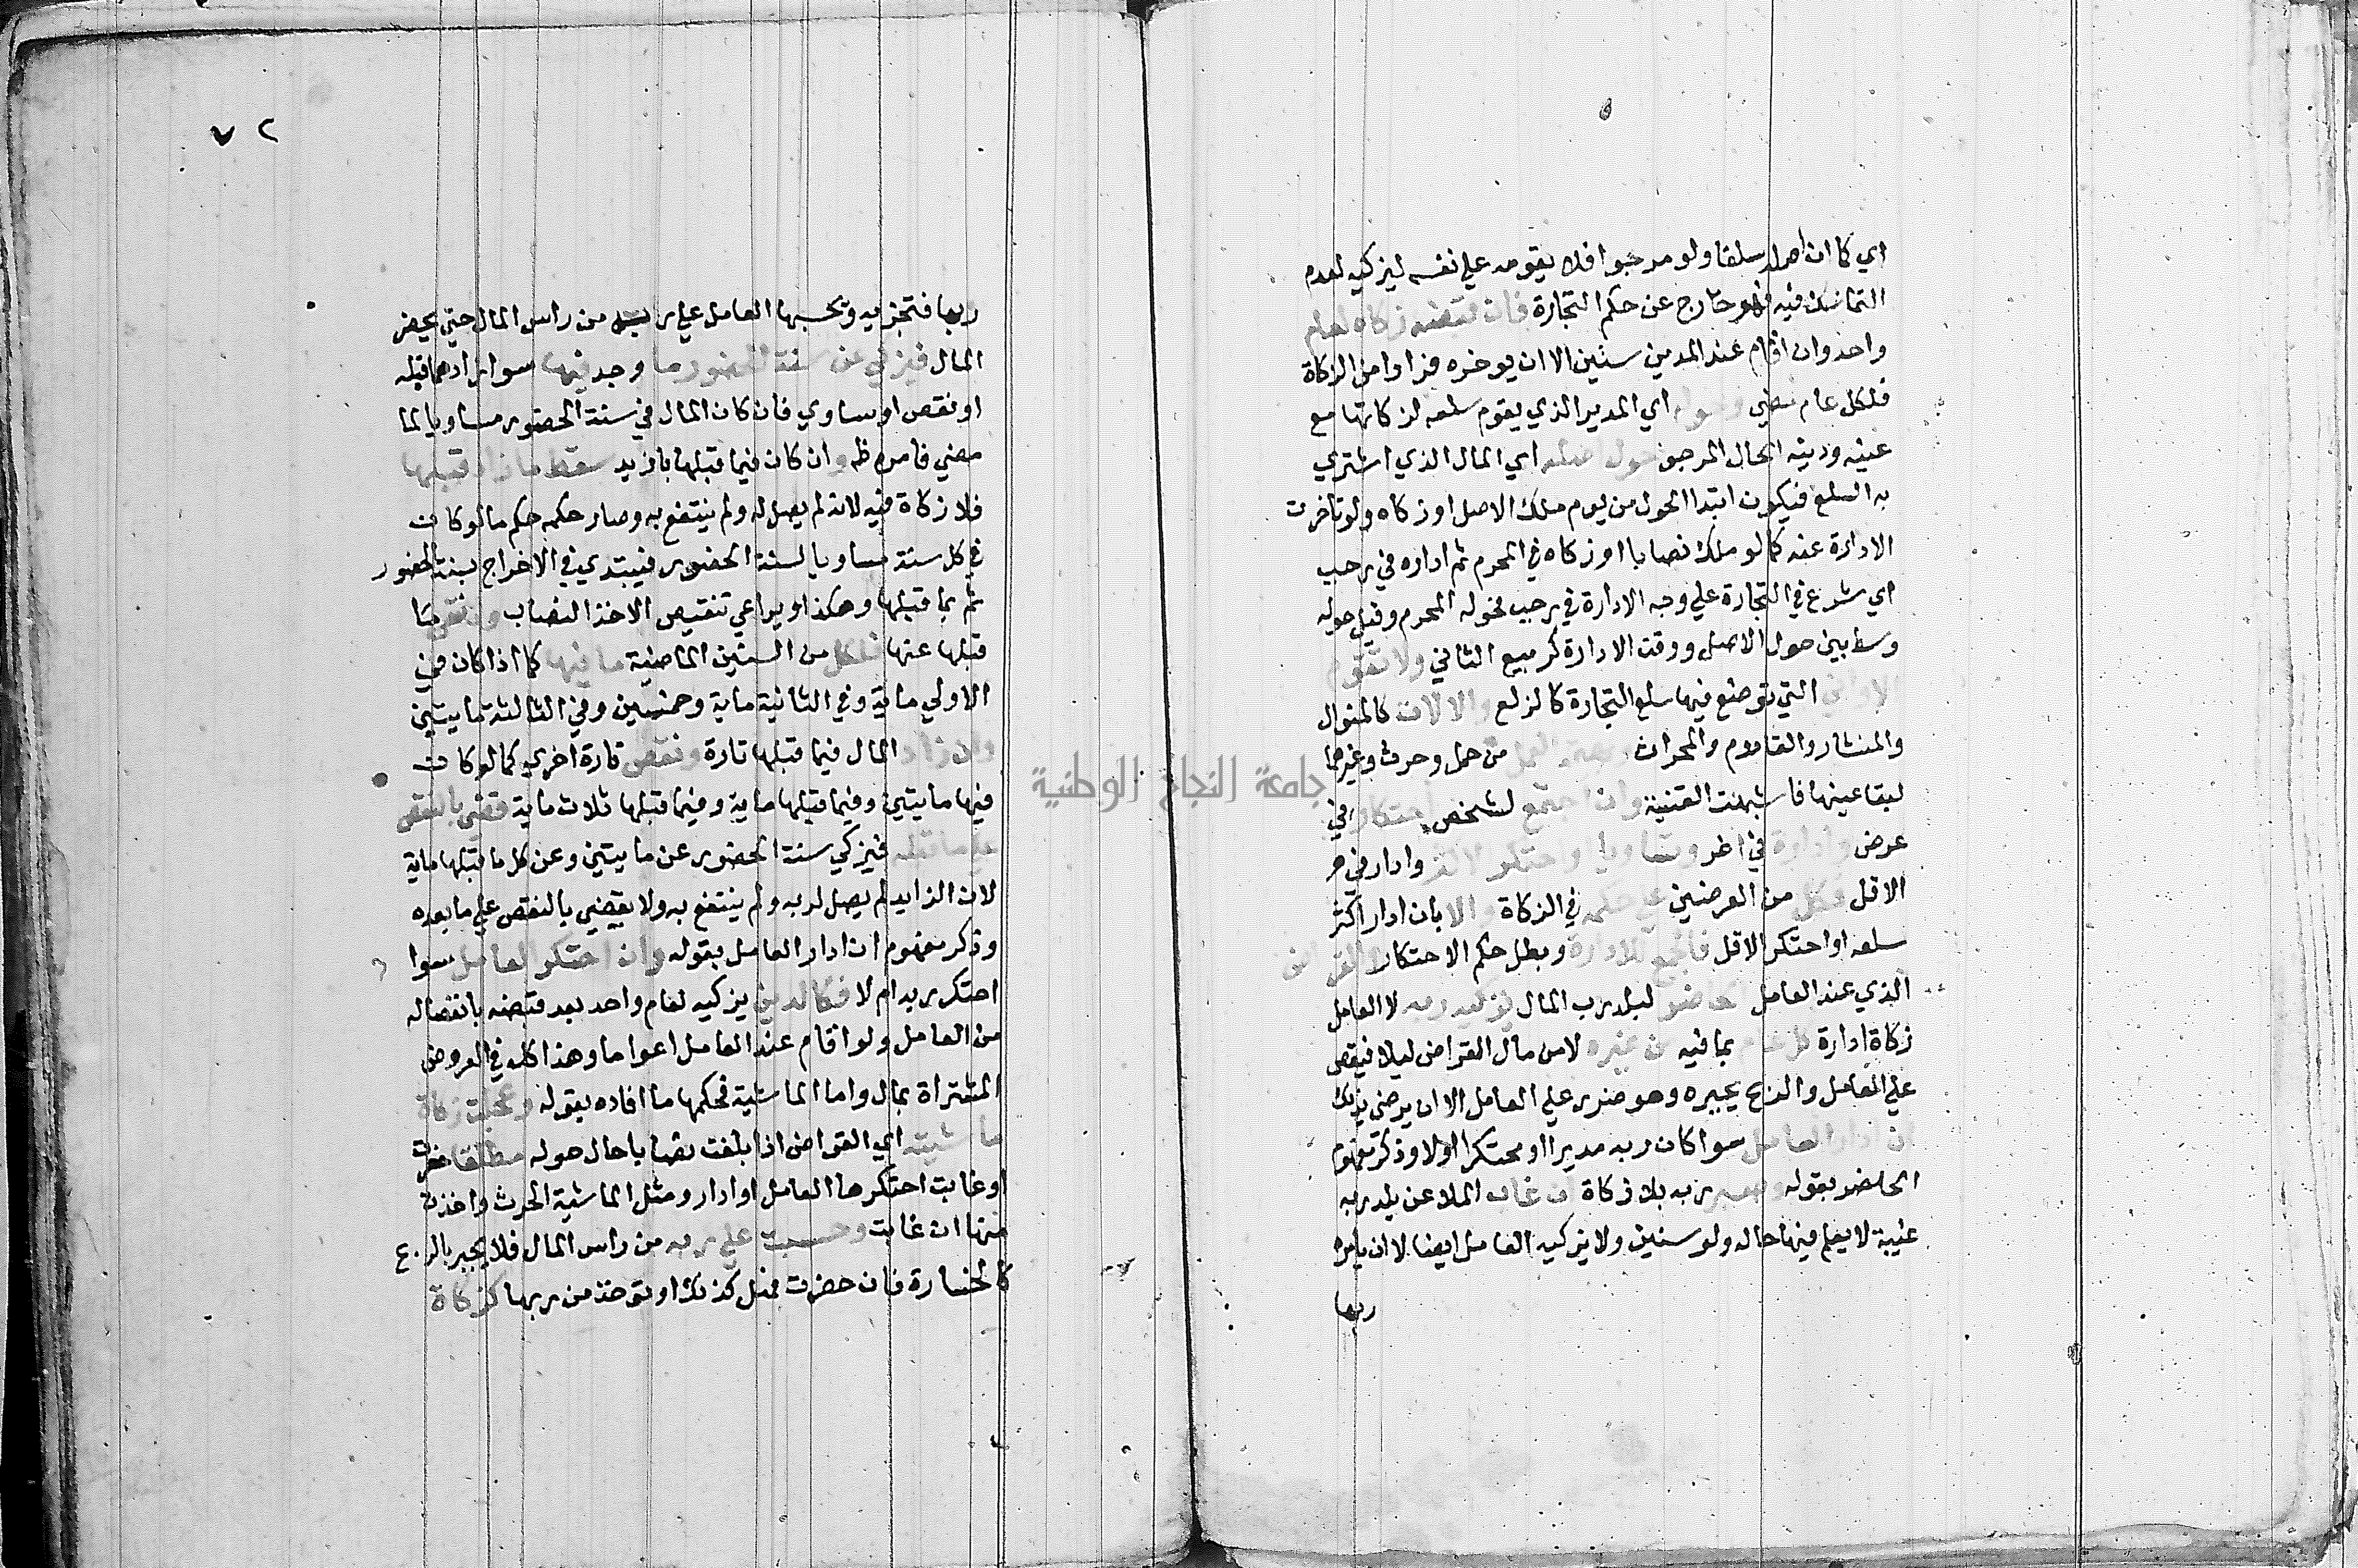 اي كما ان اصله سلفا ولو مرجوا فلا يقومه علي نفسه ليزكيه لعدم
التماسك فيه فهو خارج عن حكم التجارة فان قبضه زكاه لعام
واحد وان اقام عند المدين سنين الا ان يوخره فرارا من الزكاة
فلكل عام مضي وحوله اي المدير الذي يقوم سلعه لزكاتها مع
عينه ودينه الحال المرجو حول اصله اي المال الذي اشتري
به السلع فيكون ابتدا الحول من يوم ملك الاصل او زكاه ولو تاخرت
الادارة عنه كما لو ملك نصابا او زكاه في المحرم ثم اداره في رجب
اي شرع في التجارة علي وجه الادارة في رجب فحوله المحرم وقيل حوله
وسط بين حول الاصل ووقت الادارة كربيع الثاني ولا تقوم
الاواني التي توضع فيها سلع التجارة كالزلع والالات كالمنوال
والمنشار والقادوم والمحراث وبهيمة العمل من حمل وحرث وغيرهما
لبقا عينها فاشبهت القنية وان اجتمع لشخص احتكار في
عرض وادارة في اخر وتساويا او احتكر الاكثر وادار في
الاقل فكل من العرضين علي حكمه في الزكاة والا بان ادار اكثر
سلعه او احتكر الاقل فالجميع للادارة وبطل حكم الاحتكار والقراض
الذي عند العامل الحاضر لبلد رب المال يزكيه ربه لا العامل
زكاة ادارة كل عام بما فيه من غيره لا من مال القراض ليلا فينقص
علي العامل والربح يجبره وهو ضرر علي العامل الا ان يرضي بذلك
ان ادار العامل سوا كان ربه مديرا او محتكرا اولا وذكر مفهوم
الحاضر بقوله وصبر ربه بلا زكاة ان غاب المال عن بلد ربه
غيبة لا يعلم فيها حاله ولو سنين ولا يزكيه العامل ايضا لا ان يامره
ربها
٧٢
ربها فتجزيه وتحسبها العامل علي ربه من راس المال حتي يحضر
المال فيزكي عن سنة الحضور ما وجد فيها سوا زاد عما قبله
او نقص او ساوي فان كان المال في سنة الحضور مساويا لما
مضي فامره ظ وان كان فيما قبلها بازيد سقط ما زاد قبلها
فلا زكاة فيه لانه لم يصل له ولم ينتفع به وصار حكمه حكم ما لو كانت
في كل سنة مساويا لسنة الحضور فيبتدي في الاخراج بسنة الحضور
ثم بما قبلها وهكذا ويراعي تنقيص الاخذ النصاب وان نقص ما
قبلها عنها فلكل من السنين الماضية ما فيها كما اذا كان في
الاولي ماية وفي الثانية ماية وخمسين وفي الثالثة مايتين
وان زاد المال فيما قبلها تارة ونقص تارة اخري كما لو كانت
فيها مايتين وفيما قبلها ماية وفيما قبلها ثلاث ماية قضي بالنقص
علي ما قبله فيزكي سنة الحضور عن مايتين وعن كل ما قبلها ماية
لان الزايد لم يصل لربه ولم ينتفع به ولا يقضي بالنقص علي ما بعده
وذكر مفهوم ان ادار العامل بقوله وان احتكر العامل سوا
احتكر ربه ام لا فكالدين يزكيه لعام واحد بعد قبضه بانفصاله
من العامل ولو اقام عند العامل اعواما وهذا كله في العروض
المشتراة بمال واما الماشية فحكمها ما افاده بقوله وعجلت زكاة
ماشيته اي القراض اذا بلغت نصابا حال حوله مطلقا حضرت
او غابت احتكرها العامل او ادار ومثل الماشية الحرث واخذت
منها ان غابت وحسبت علي ربه من راس المال فلا يجبر بالربح
كالخسارة فان حضرت فهل كذلك او توخذ من ربها كزكاة
جامعة النجاح الوطنية